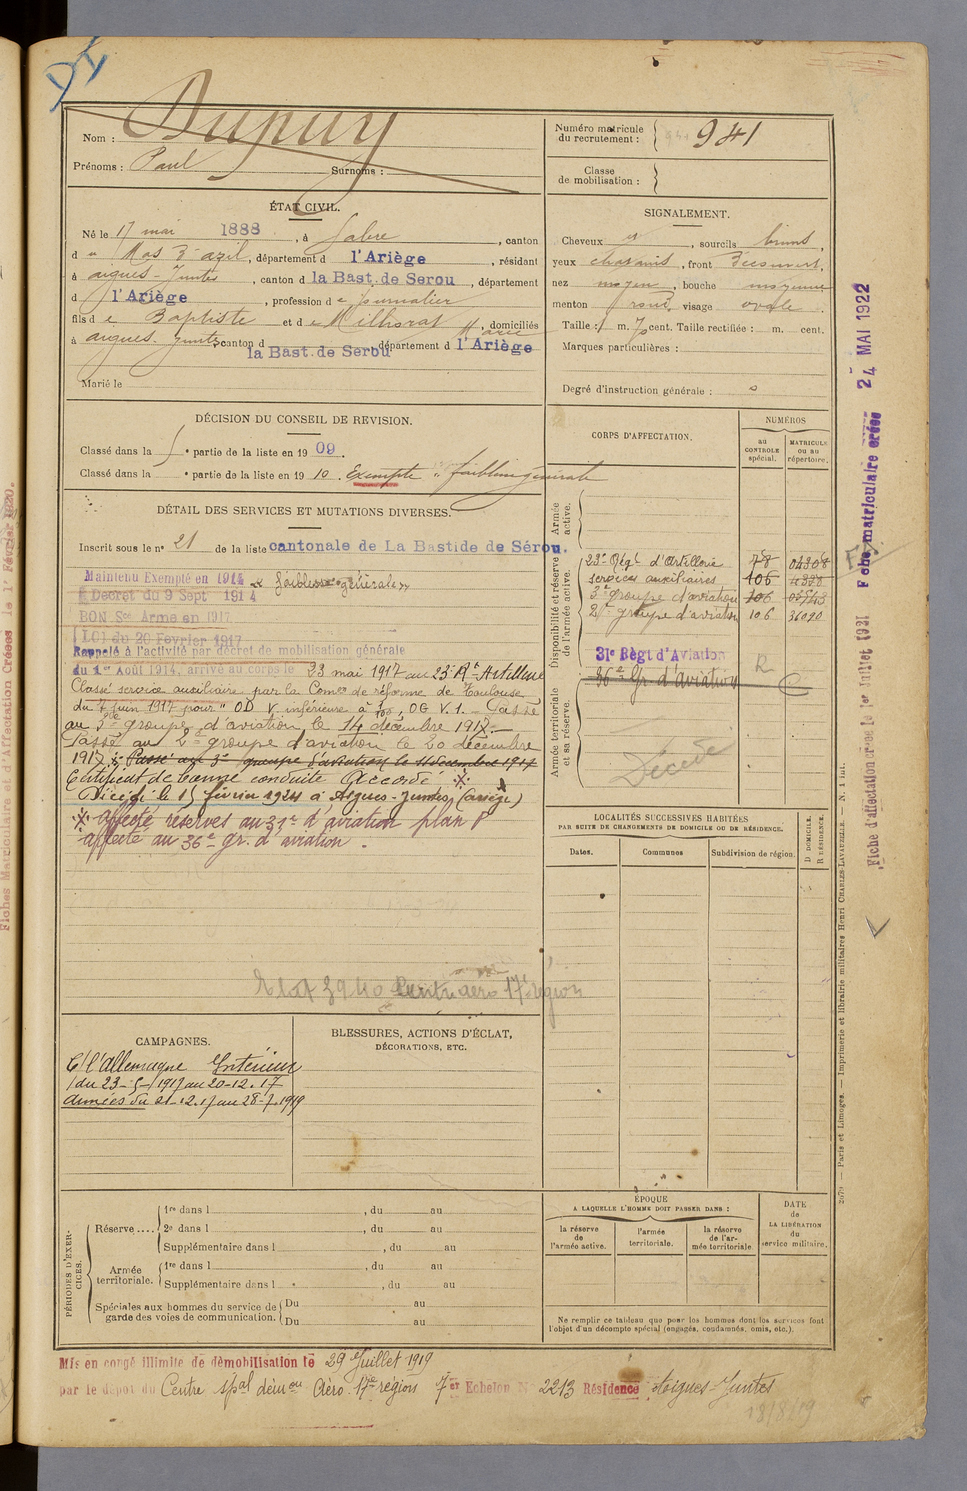 Dupuy
Nom :
Prénoms : Paul Surnoms :
Numéro matricule
du recrutement : 941
Classe
de mobilisation :
ÉTAT CIVIL.
Né le 17 mai 1888, à Sabre, canton
d u Mas d'azil, département d l'Ariège, résidant
à aigues-Juntes, canton d la Bast. de Serou, département
d l'Ariège, profession de Journalier
fils de Baptiste et de Milhorat Marie, domiciliés
à aigues-Juntes, canton d la Bast. de Serou département d l'Ariège
Marié le
SIGNALEMENT.
Cheveux et, sourcils bruns,
yeux chatains, front découvert,
nez moyen, bouche moyenne
menton rond, visage ovale.
Taille : 1 m. cent. Taille rectifiée : m. cent.
Marques particulières :
Degré d'instruction générale : 0
DÉCISION DU CONSEIL DE REVISION.
Classé dans la e partie de la liste en 19 09.
Classé dans la e partie de la liste en 19 10. Exempté faiblesse générale
DÉTAIL DES SERVICES ET MUTATIONS DIVERSES.
Inscrit sous le n° 21 de la liste cantonale de La Bastide de Sérou.
Maintenu Exempté en 1914 "faiblesse générale"
Décret du 9 Sept 1914
BON Sce Armé en 1917
Loi du 20 Février 1917
Rappelé à l'activité par décret de mobilisation générale
du 1er Août 1914, arrivé au corps le 23 mai 1917 au 23e Rt Artillerie
Classé service auxiliaire par la Comon de réforme de Toulouse
du 7 juin 1917 pour "OD V inférieure à 1/10, OG V. 1. – Passé
au 3e groupe d'aviation le 14 décembre 1917. –
Passé au 2e groupe d'aviation le 20 décembre
1917. Passé au 3e groupe d'aviation le 14 décembre 1917
Certificat de bonne conduite Accordé
Décédé le 15 février 1924 à Aigues-Juntes (ariège)
affecté réserves au 31e d'aviation plan P
affecté au 36e gr. d'aviation.
CORPS D'AFFECTATION.
NUMÉROS
au
CONTROLE
spécial.
MATRICULE
ou au
répertoire.
Armée
active.
Disponibilité et réserve
de l'armée active.
23e Régt d'Artillerie 78 04308
services auxiliaires 106 4398
3e groupe d'aviation 106 03543
2e groupe d'aviation 106 36090
31e Régt d'Aviation R
36e Gr. d'aviation
Armée territoriale
et sa réserve.
Décédé
LOCALITÉS SUCCESSIVES HABITÉES
PAR SUITE DE CHANGEMENTS DE DOMICILE OU DE RÉSIDENCE.
Dates.
Communes
Subdivision de région.
D DOMICILE.
R RÉSIDENCE.
Centre aéro 17e région
CAMPAGNES.
C/ l'Allemagne Intérieur
du 23-5-1917 au 20-12.17
Armées du 21-12.17 au 28-7.1919
BLESSURES, ACTIONS D'ÉCLAT,
DÉCORATIONS, ETC.
PÉRIODES D'EXERCICES.
Réserve ....
1re dans l , du au
2e dans l , du au
Supplémentaire dans l , du au
Armée
territoriale.
1re dans l , du au
Supplémentaire dans l , du au
Spéciales aux hommes du service de
garde des voies de communication.
Du au
Du au
ÉPOQUE
A LAQUELLE L'HOMME DOIT PASSER DANS :
la réserve
de
l'armée active.
l'armée
territoriale.
la réserve
de l'armée territoriale.
DATE
de
LA LIBÉRATION
du
service militaire.
Ne remplir ce tableau que pour les hommes dont les services font
l'objet d'un décompte spécial (engagés, condamnés, omis, etc.).
Mis en congé illimité de démobilisation le 29 Juillet 1919
par le dépôt du Centre spal démon Aéro. 17e région 7er Echelon N° 2213 Résidence Aigues-Juntes
18/8/19
Fiche d'affectation créée le 1er Juillet 1921 Fiche matriculaire créée 24 MAI 1922
2079 — Paris et Limoges. — Imprimerie et librairie militaires Henri CHARLES-LAVAUZELLE.
Fiches Matriculaire et d'Affectation Créées le 1er Février 1920.